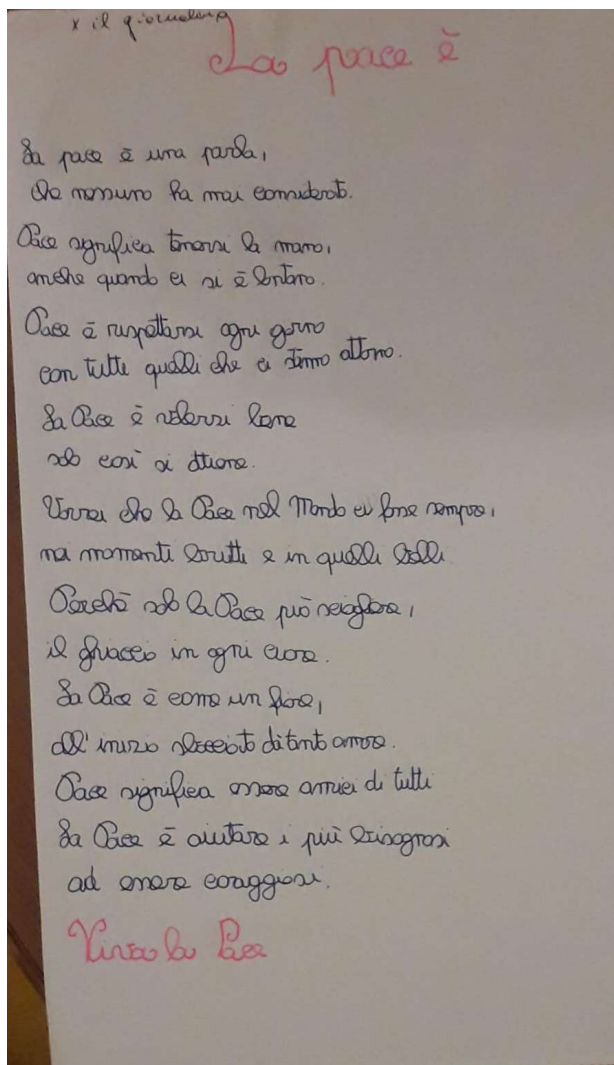 x il giornalino
La pace è
La pace è una parola,
che nessuno ha mai considerato.
Pace significa tenersi la mano,
anche quando ci si è lontano.
Pace è rispettarsi ogni giorno
con tutti quelli che ci stanno attorno.
La Pace è volersi bene
solo così si ottiene.
Vorrei che la Pace nel Mondo ci fosse sempre,
nei momenti brutti e in quelli belli
Perchè solo la Pace può sciogliere,
il ghiaccio in ogni cuore.
La Pace è come un fiore,
all'inizio sbocciato di tanto amore.
Pace significa essere amici di tutti
La Pace è aiutare i più bisognosi
ad essere coraggiosi.
Viva la Pace